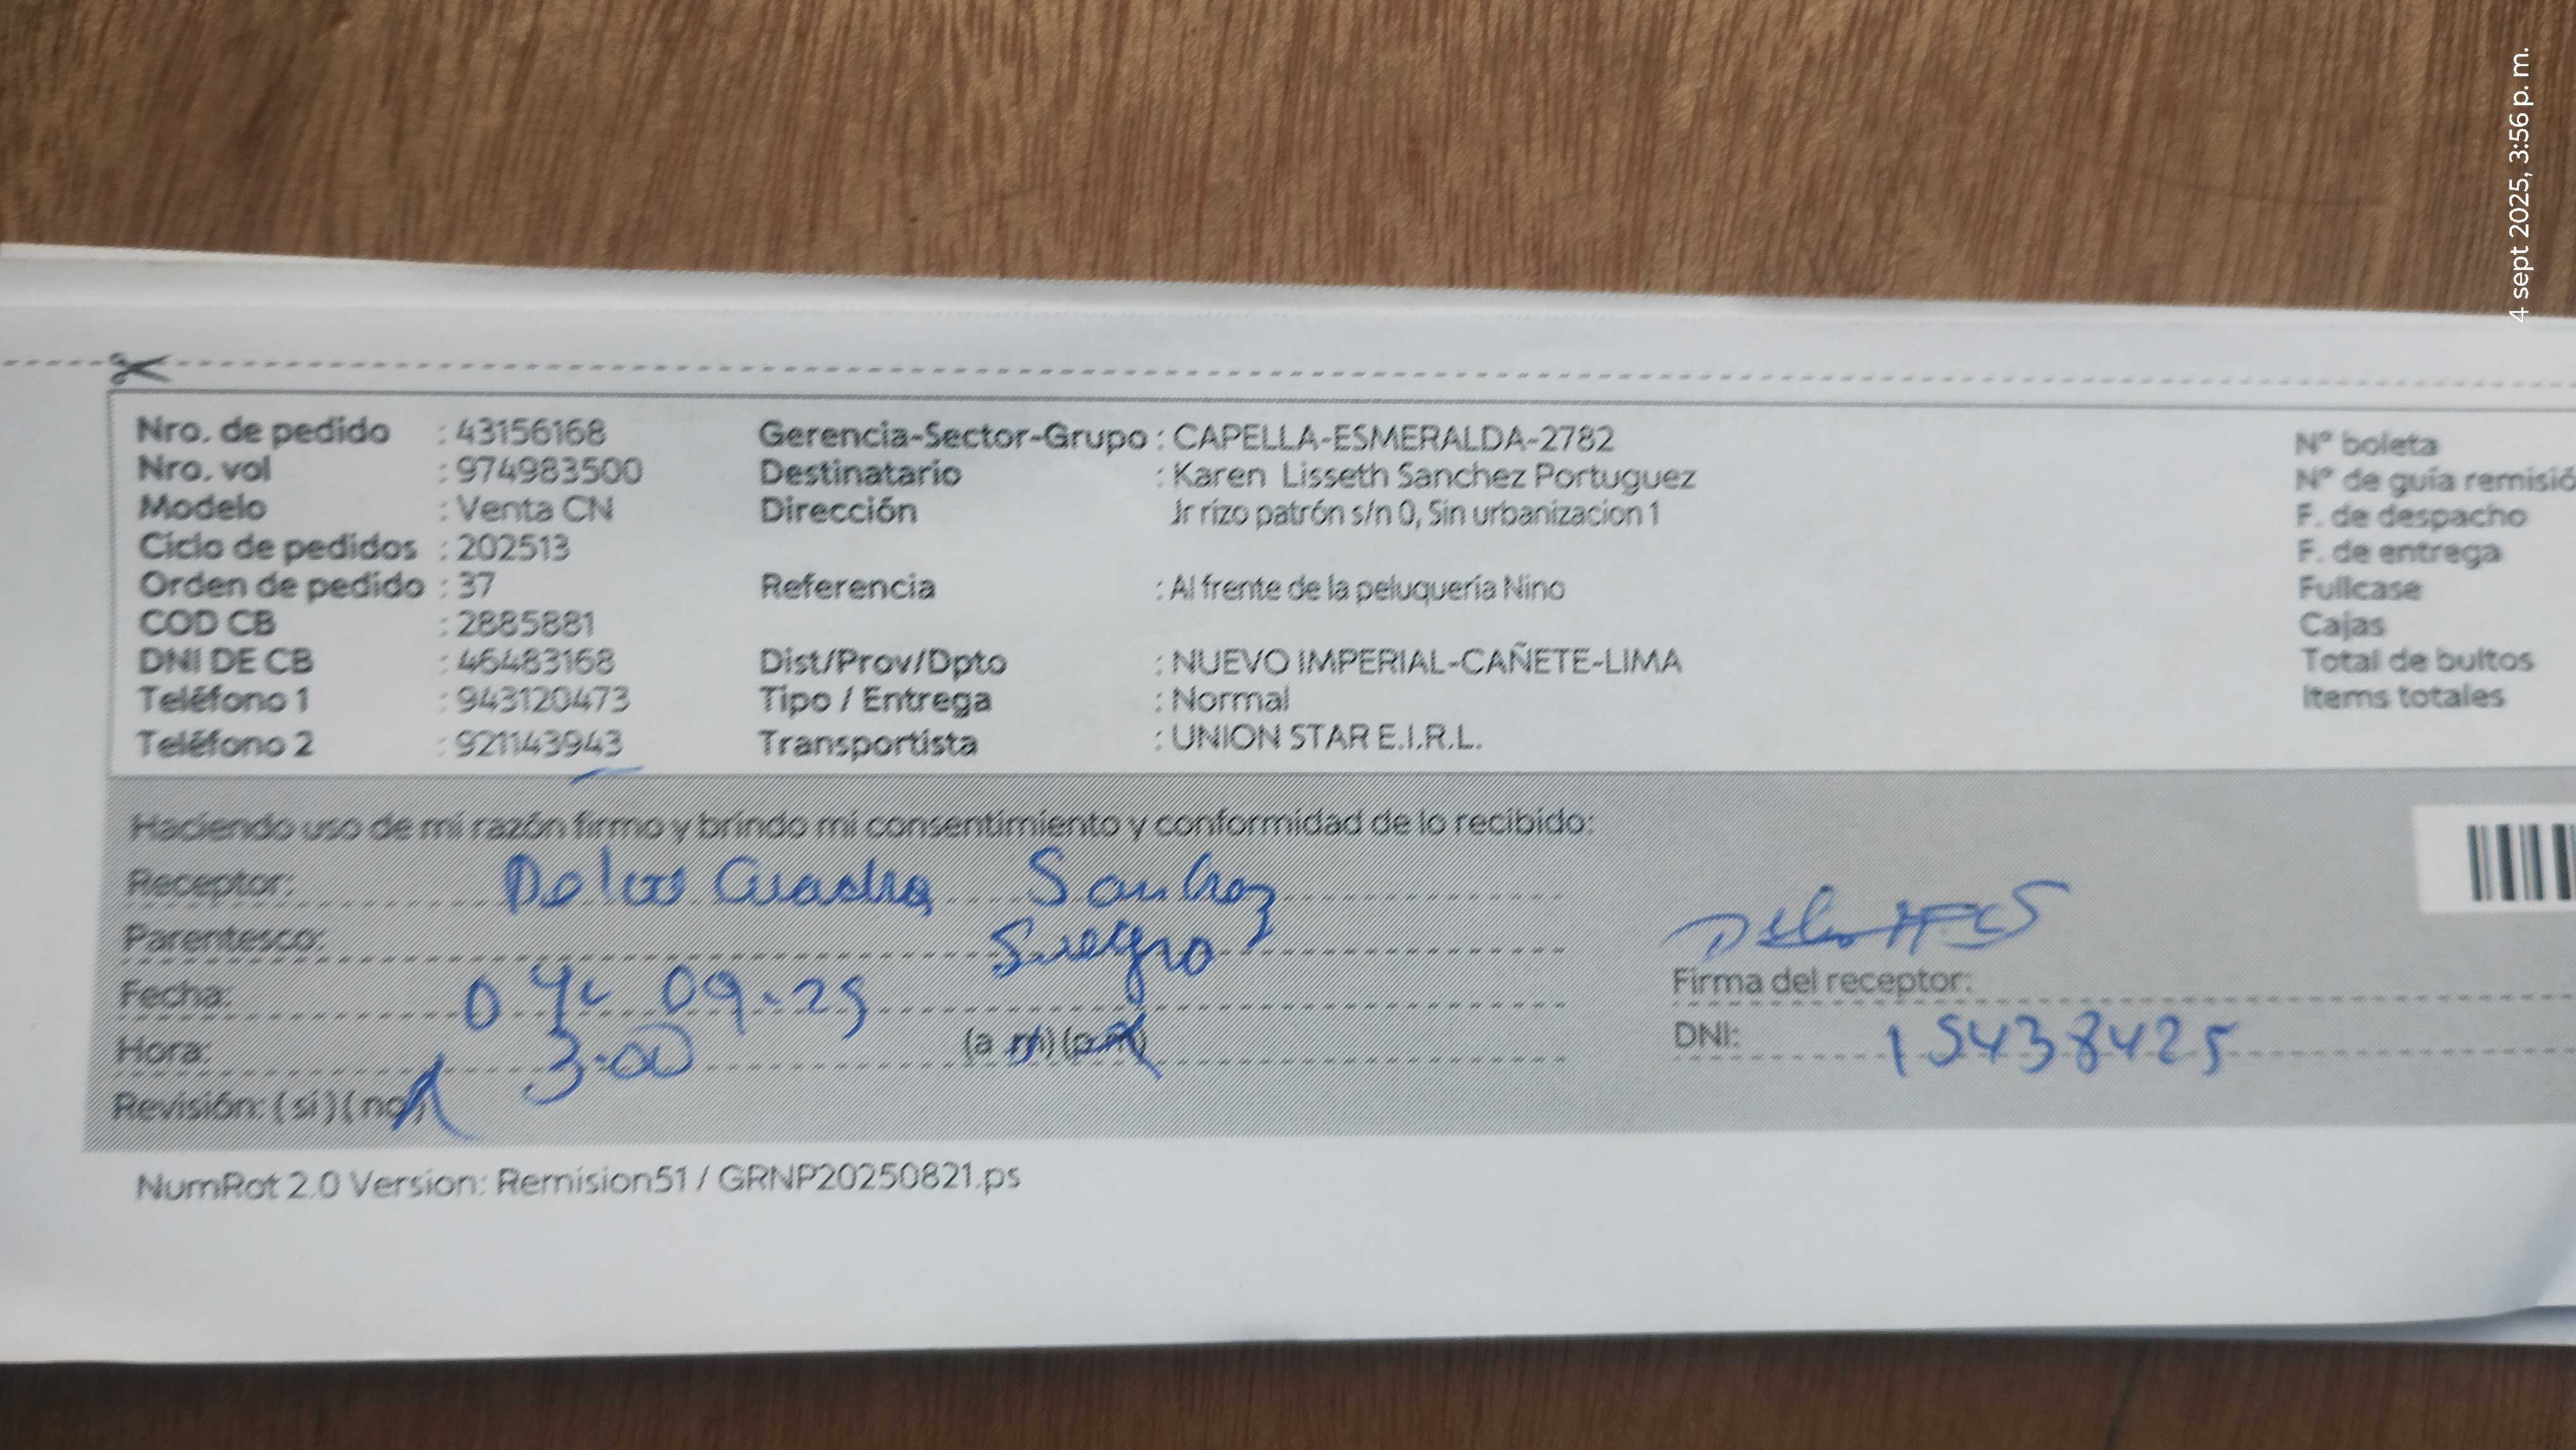 4 sept 2025, 3:56 p. m.
Nro. de pedido : 43156168 Gerencia-Sector-Grupo : CAPELLA-ESMERALDA-2782 N° boleta
Nro. vol : 974983500 Destinatario : Karen Lisseth Sanchez Portuguez N° de guía remisió
Modelo : Venta CN Dirección Jr rizo patrón s/n 0, Sin urbanizacion 1 F. de despacho
Ciclo de pedidos : 202513 F. de entrega
Orden de pedido : 37 Referencia : Al frente de la peluquería Nino Fullcase
COD CB : 2885881 Cajas
DNI DE CB : 46483168 Dist/Prov/Dpto : NUEVO IMPERIAL-CAÑETE-LIMA Total de bultos
Teléfono 1 : 943120473 Tipo / Entrega : Normal Items totales
Teléfono 2 : 921143943 Transportista : UNION STAR E.I.R.L.
Haciendo uso de mi razón firmo y brindo mi consentimiento y conformidad de lo recibido:
Receptor: Cuadra Sanchez
Parentesco: Suegro
Firma del receptor:
Fecha: 04 09-25
Hora: 3:00 (a m) (p m) DNI: 15438425
Revisión: ( si ) ( no )
NumRot 2.0 Version: Remision51 / GRNP20250821.ps